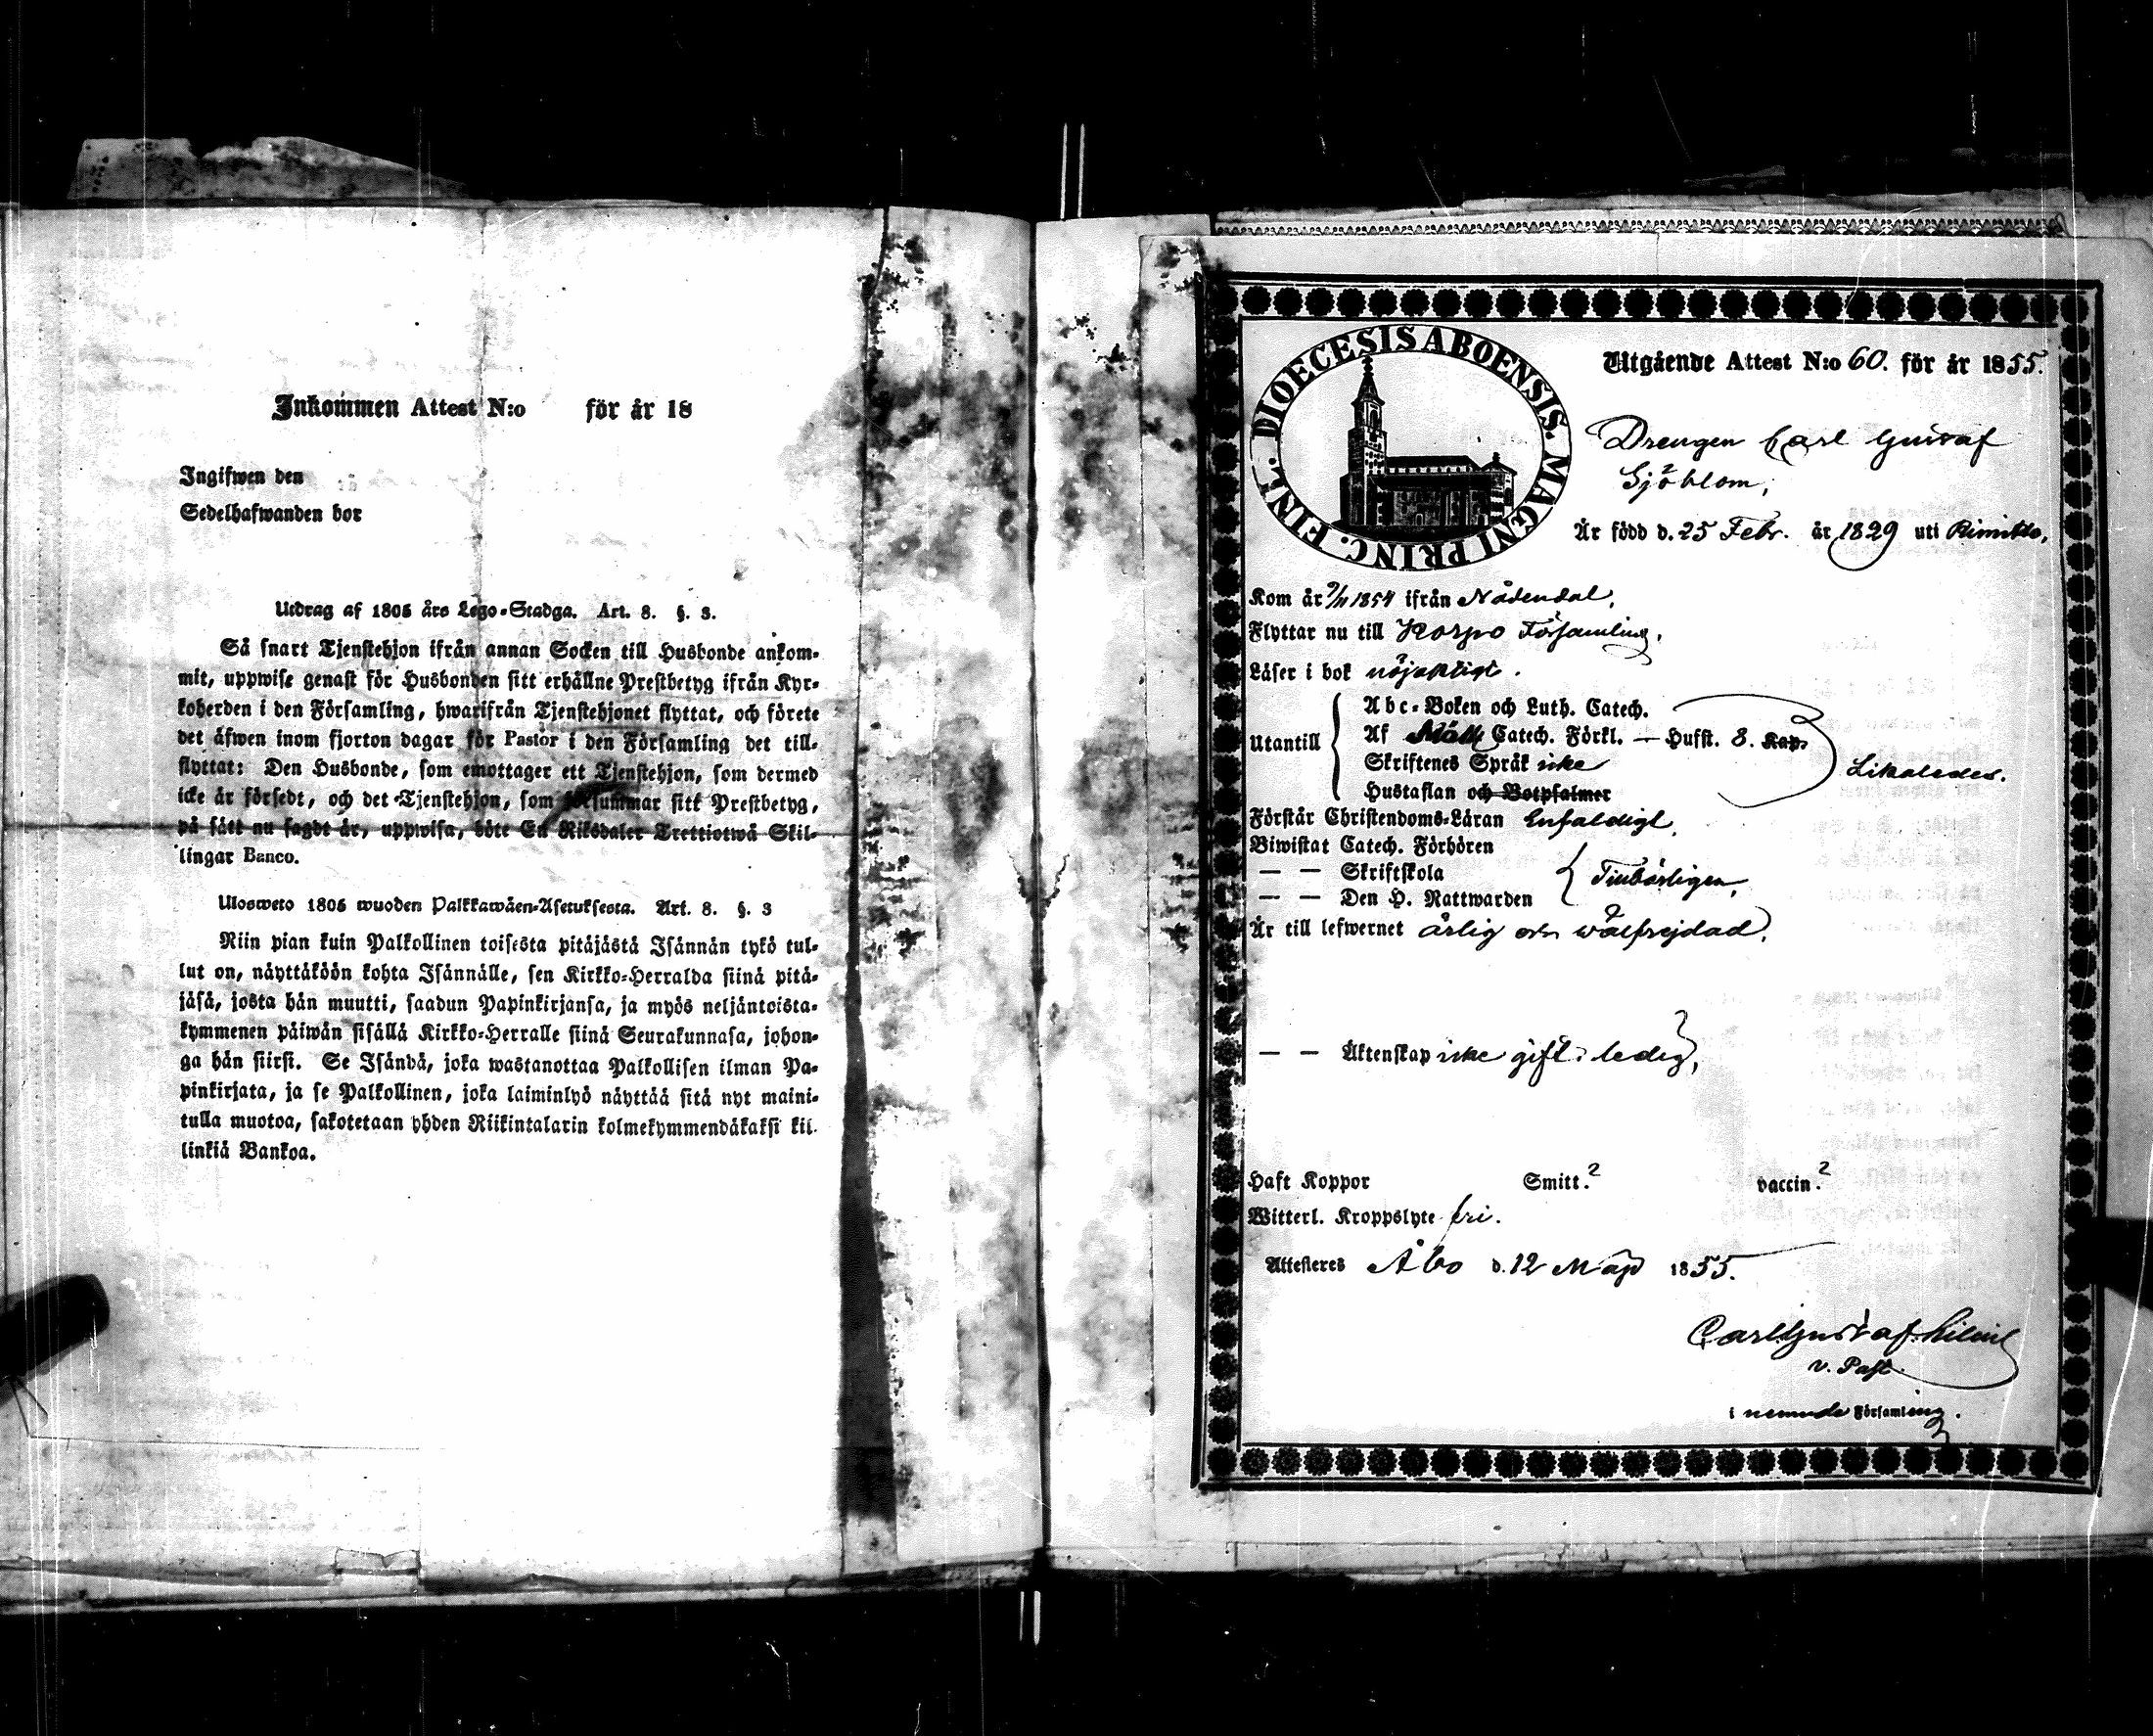 Inkommen Attest N:o för år 18
Ingifwen den
Sedelhafwanden bor
Utdrag af 1805 års Lego-Stadga. Art. 8. §. 3.
Så snart Tjenstehjon ifrån annan Socken till Husbonde ankom-
mit, uppwise genast för Husbonden sitt erhållne Prestbetyg ifrån Kyr-
koherden i den Församling, hwarifrån Tjenstehjonet flyttat, och förete
det äfwen inom fjorton dagar för Pastor i den Församling det till-
flyttat: Den Husbonde, som emottager ett Tjenstehjon, som dermed
icke är försedt, och det Tjenstehjon, som försummar sitt Prestbetyg,
på sätt nu sagdt är, uppwisa, böte En Riksdaler Trettiotwå Skil-
lingar Banco.
Ulosweto 1805 wuoden Palkkawäen-Asetuksesta. Art. 8. §. 3
Niin pian kuin Palkollinen toisesta pitäjästä Isännän tykö tul-
lut on, näyttäköön kohta Isännälle, sen Kirkko-Herralda siinä pitä-
jäsä, josta hän muutti, saadun Papinkirjansa, ja myös neljäntoista-
kymmenen päiwän sisällä Kirkko-Herralle siinä Seurakunnasa, johon-
ga hän siirsi. Se Isändä, joka wastanottaa Palkollisen ilman Pa-
pinkirjata, ja se Palkollinen, joka laiminlyö näyttää sitä nyt maini-
tulla muotoa, sakotetaan yhden Riikintalarin kolmekymmendäkaksi kil-
linkiä Bankoa.
DIOECESIS ABOENSIS. MAGNI PRINC. FINL.
Utgående Attest N:o 60. för år 1855.
Drengen Carl Gustaf
Sjöblom,
Är född d. 25 Febr. år 1829 uti Rimito,
Kom år 9/11 1854 ifrån Nådendal,
Flyttar nu till Korpo Församling,
Läser i bok nöjaktigt.
Utantill
Abc-Boken och Luth. Catech.
Af Catech. Förkl. — Hufst. 8. Kap.
Skriftenes Språk icke
Hustaflan och Botpsalmer
Likaledes.
Förstår Christendoms-Läran Enfaldigt,
Biwistat Catech. Förhören
— — Skriftskola
— — Den H. Nattwarden
Tillbörligen,
Är till lefwernet ärlig och wälfrejdad,
— — Äktenskap icke gift: ledig,
Haft Koppor Smitt.? vaccin.?
Witterl. Kroppslyte fri.
Attesteres Åbo d. 12 Maji 1855.
Carl Gustaf
v. Past.
i nemnde Församling.